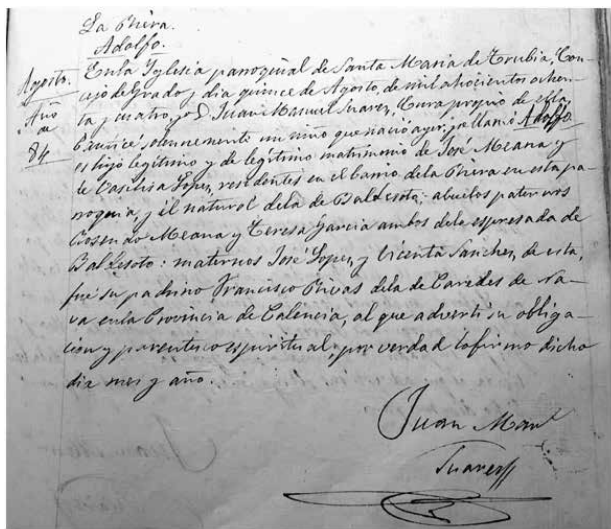 La Riera.
Adolfo.
Agosto.
Año
de
84
En la Yglesia parroquial de Santa Maria de Trubia, Con-
cejo de Grado, dia quince de Agosto, de mil ochocientos ochen-
ta y cuatro, yo D. Juan Manuel Suarez, Cura propio de ella,
bauticé solemnemente un niño que nació ayer, se llamó Adolfo
es hijo legitimo y de legitimo matrimonio de José Meana y
de Basilisa Lopez, residentes en el barrio de la Riera en esta pa-
rroquia, y él natural de la de Baldesoto: abuelos paternos
Rosendo Meana y Teresa Garcia ambos de la espresada de
Baldesoto: maternos José Lopez, y Vicenta Sanchez, de esta,
fué su padrino Francisco Rivas de la de Paredes de Na-
va en la Provincia de Palencia, al que advertí su obliga-
cion y parentesco espiritual, por verdad lo firmo dicho
dia mes y año.
Juan Man.l
Suarez